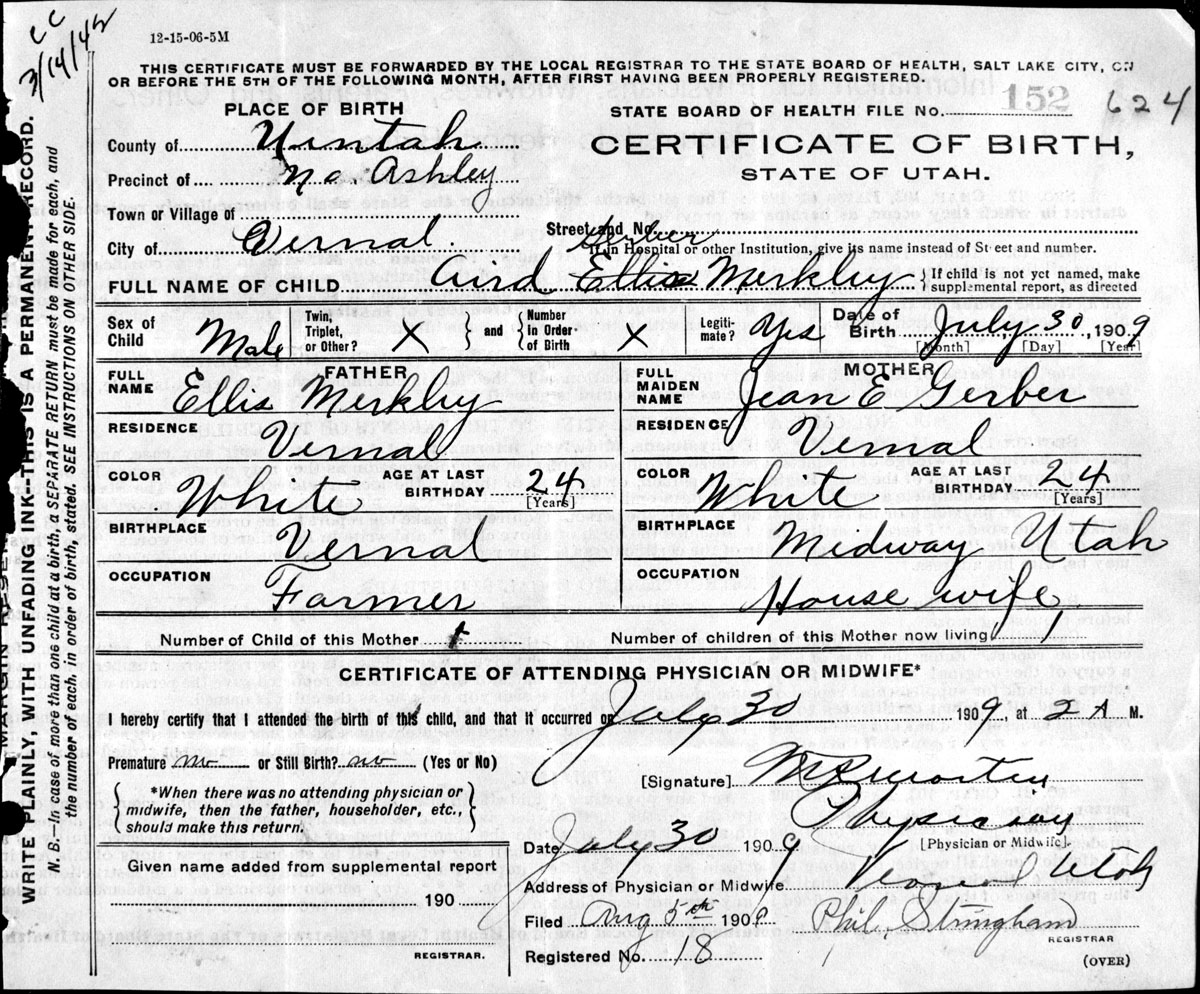 CC
3/14/42
12-15-06-5M
THIS CERTIFICATE MUST BE FORWARDED BY THE LOCAL REGISTRAR TO THE STATE BOARD OF HEALTH, SALT LAKE CITY, ON
OR BEFORE THE 5TH OF THE FOLLOWING MONTH, AFTER FIRST HAVING BEEN PROPERLY REGISTERED.
PLACE OF BIRTH
STATE BOARD OF HEALTH FILE No. 152 624
County of Uintah
CERTIFICATE OF BIRTH,
Precinct of No. Ashley
STATE OF UTAH.
Town or Village of
Street and No.
City of Vernal
Gerber
[In Hospital or other Institution, give its name instead of Street and number.
FULL NAME OF CHILD Aird Ellis Merkley } If child is not yet named, make
supplemental report, as directed
Sex of Child Male
Twin, Triplet, or Other? X } and { Number In Order of Birth X
Legiti-mate? Yes
Date of Birth July 30, 1909
[Month] [Day] [Year]
FATHER
FULL NAME Ellis Merkley
MOTHER
FULL MAIDEN NAME Jean E Gerber
RESIDENCE Vernal
RESIDENCE Vernal
COLOR White AGE AT LAST BIRTHDAY 24 [Years]
COLOR White AGE AT LAST BIRTHDAY 24 [Years]
BIRTHPLACE Vernal
BIRTHPLACE Medway Utah
OCCUPATION Farmer
OCCUPATION House wife
Number of Child of this Mother 1
Number of children of this Mother now living 1
CERTIFICATE OF ATTENDING PHYSICIAN OR MIDWIFE*
I hereby certify that I attended the birth of this child, and that it occurred on July 30 1909, at 2 A M.
Premature no or Still Birth? no (Yes or No)
[Signature]
*When there was no attending physician or
midwife, then the father, householder, etc.,
should make this return.
Physician
Date July 30 1909 [Physician or Midwife]
Given name added from supplemental report
190
REGISTRAR.
Address of Physician or Midwife Vernal Utah
Filed Aug 5th 1909 Phil. Stringham
REGISTRAR
Registered No. 18
(OVER)
WRITE PLAINLY, WITH UNFADING INK--THIS IS A PERMANENT RECORD.
N. B.—In case of more than one child at a birth, a SEPARATE RETURN must be made for each, and
the number of each, in order of birth, stated. SEE INSTRUCTIONS ON OTHER SIDE.